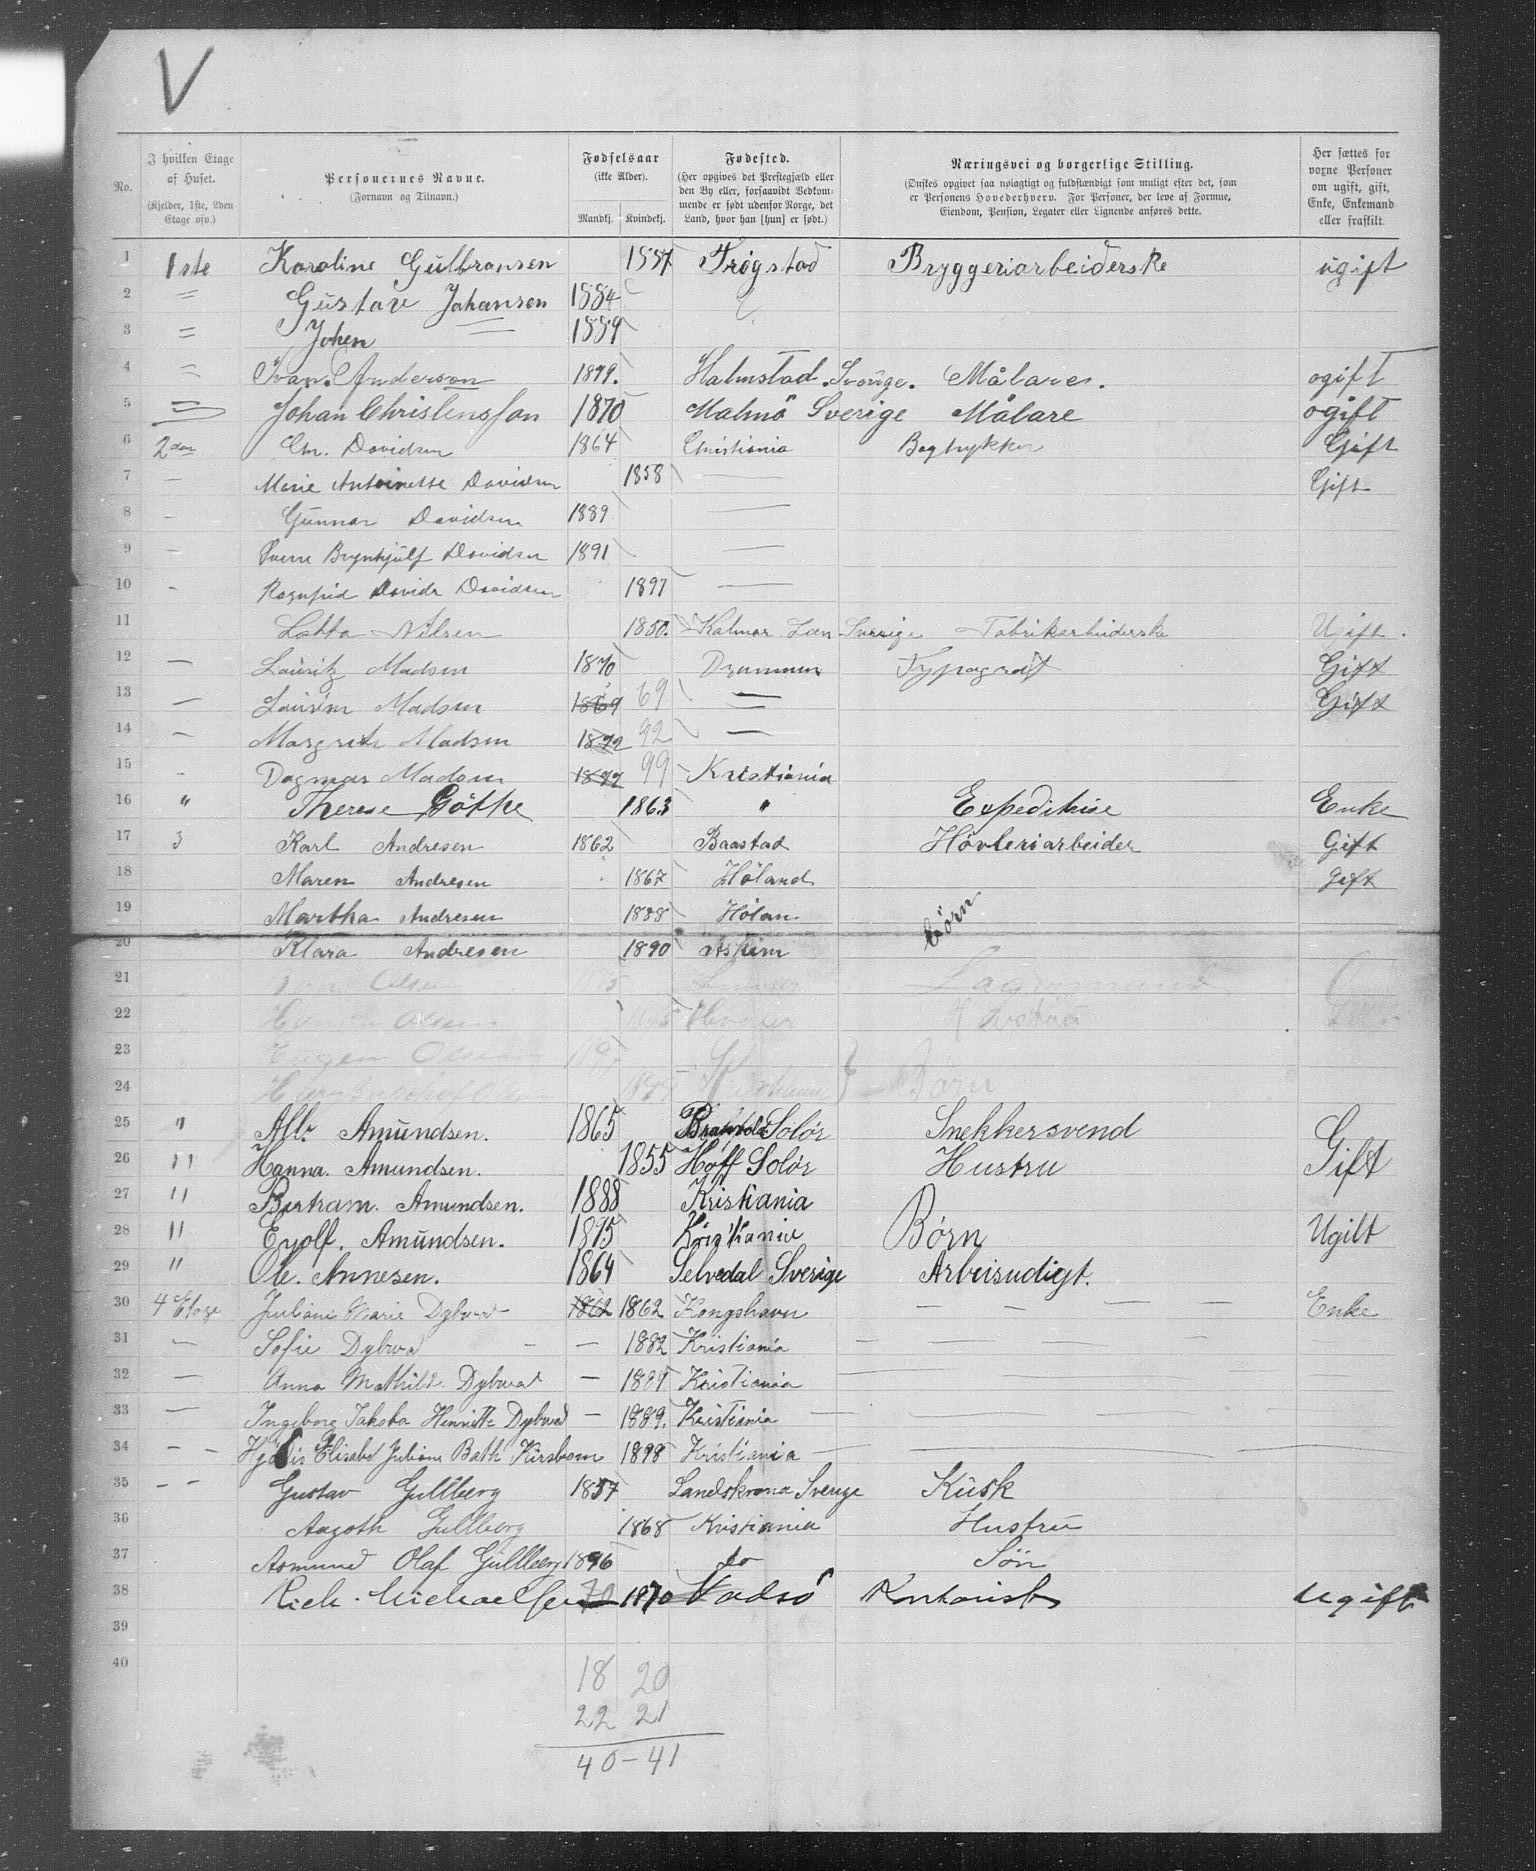 V
No. | I hvilken Etage af Huset. (Kjelder, 1ste, 2den Etage osv.) | Personernes Navne. (Fornavn og Tilnavn.) | Fødselsaar (ikke Alder). Mandkj. Kvindekj. | Fødested. (Her opgives det Prestegjæld eller den By eller, forsaavidt Vedkommende er født udenfor Norge, det Land, hvor han [hun] er født.) | Næringsvei og borgerlige Stilling. (Ønskes opgivet saa nøiagtigt og fuldstændigt som muligt efter det, som er Personens Hovederhverv. For Personer, der leve af Formue, Eiendom, Pension, Legater eller Lignende anføres dette. | Her sættes for voxne Personer om ugift, gift, Enke, Enkemand eller fraskilt.
1 1ste Karoline Gulbransen 1857 Trøgstad Bryggeriarbeiderske ugift
2 = Gustav Johansen 1884
3 = Johen = 1889
4 = Ivan Anderson Halmstad Sverige. Målare. ogift
5 = Johan Christensson 1870 Malmö Sverige Målare ogift
6 2den Chr. Davidsen 1864 Christiania Bogtrykker Gift
7 — Marie Antoinette Davidsen 1858 — Gift
8 - Gunnar Davidsen 1889 —
9 - Sverre Brynhjulf Davidsen 1891 —
10 - Ragnfrid Davida Davidsen 1897 —
11 Lotta Nilsen 1850. Kalmar Læn Sverige Fabrikarbeiderske Ugift.
12 — Lauritz Madsen 1870 Drammen Typograf Gift
13 — Madsen 1869 69 — Gift
14 — Margrete Madsen 92 —
15 - Dagmar Madsen 99 Kristiania
16 " Therese 1863 " Expeditrise Enke
17 3 Karl Andresen 1862 Baastad Høvleriarbeider Gift
18 Maren Andresen 1867 Høland gift
19 Martha Andresen 1888 Hølan Børn
20 Klara Andresen 1890 Askim
21 Olsen
22 Olsen
23 Eugen Olsen
24 Børn
25 " Alb. Amundsen. 1865 Solør Snekkersvend Gift
26 " Hanna. Amundsen. 1855 Hoff Solør Hustru
27 " Bertram. Amundsen. 1888 Kristiania
28 " Eyolf. Amundsen. 1895 Kristiania Børn Ugift
29 " Ole. Annesen. 1864 Selvedal Sverige Arbeisudigt.
30 4 Etage Juliane Marie Dybwad 1862 1862 Kongshavn — — — — Enke
31 — Sofie Dybwad — — 1882 Kristiania — — — —
32 — Anna Mathilde Dybwad — Kristiania —
33 — Ingeborg Jakoba Henriette Dybwad — 1889. Kristiania —
34 — — Hjørdis Elisabet Juliane Bath Kirsbom 1898 Kristiania —
35 - - Gustav Gullberg 1857 Landskrona Sverige Kusk
36 Aagoth Gullberg 1868 Kristiania Hustru
37 Asmund Olaf Gullberg 1896 do Søn
38 Rich. Michaelsen 70 1870 Vadsø Kontorist Ugift
39
40
18 20
22 21
40 - 41